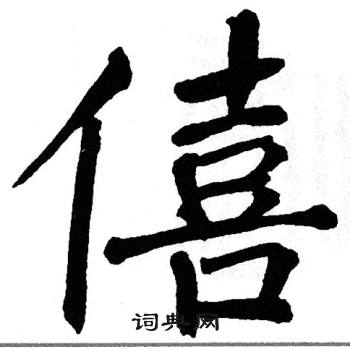 僖
词典网